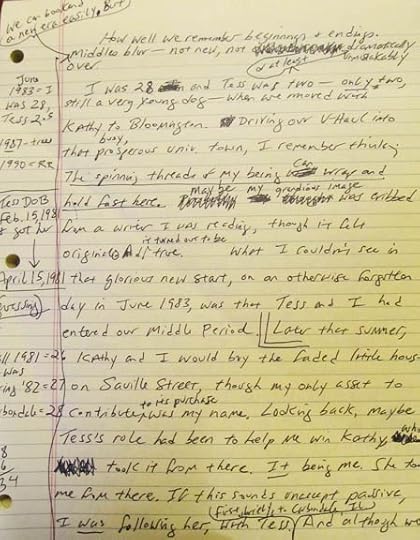 We can bookend
a new era easily, but
How well we remember beginnings & endings.
Middles blur — not new, not dramatically
or at least unmistakably
over.
June
1983 = I
was 28,
Tess 2.5
1987 - tree
1990 = RR
Tess DOB
Feb. 15, 1981
I got her
April 15, 1981
I was 28 and Tess was two — only two,
still a very young dog — when we moved with
Kathy to Bloomington. Driving our U-Haul into
that prosperous busy, univ. town, I remember thinking
The spinning threads of my being can wrap and
hold fast here. maybe my grandiose image was cribbed
from a writer I was reading, though it felt
original & it turned out to be true. What I couldn't see in
that glorious new start, on an otherwise forgotten
day in June 1983, was that Tess and I had
entered our Middle Period. Later that summer,
Fall 1981 = 26
was
'82 = 27
= 28
Kathy and I would buy the faded little house
on Saville Street, though my only asset to
contribute to this purchase was my name. Looking back, maybe
Tess's role had been to help me win Kathy,
took it from there. It being me. She took
me from there. If this sounds passive,
I was following her, with Tess. (First, briefly, to Carbondale, Ill.) And although we
34